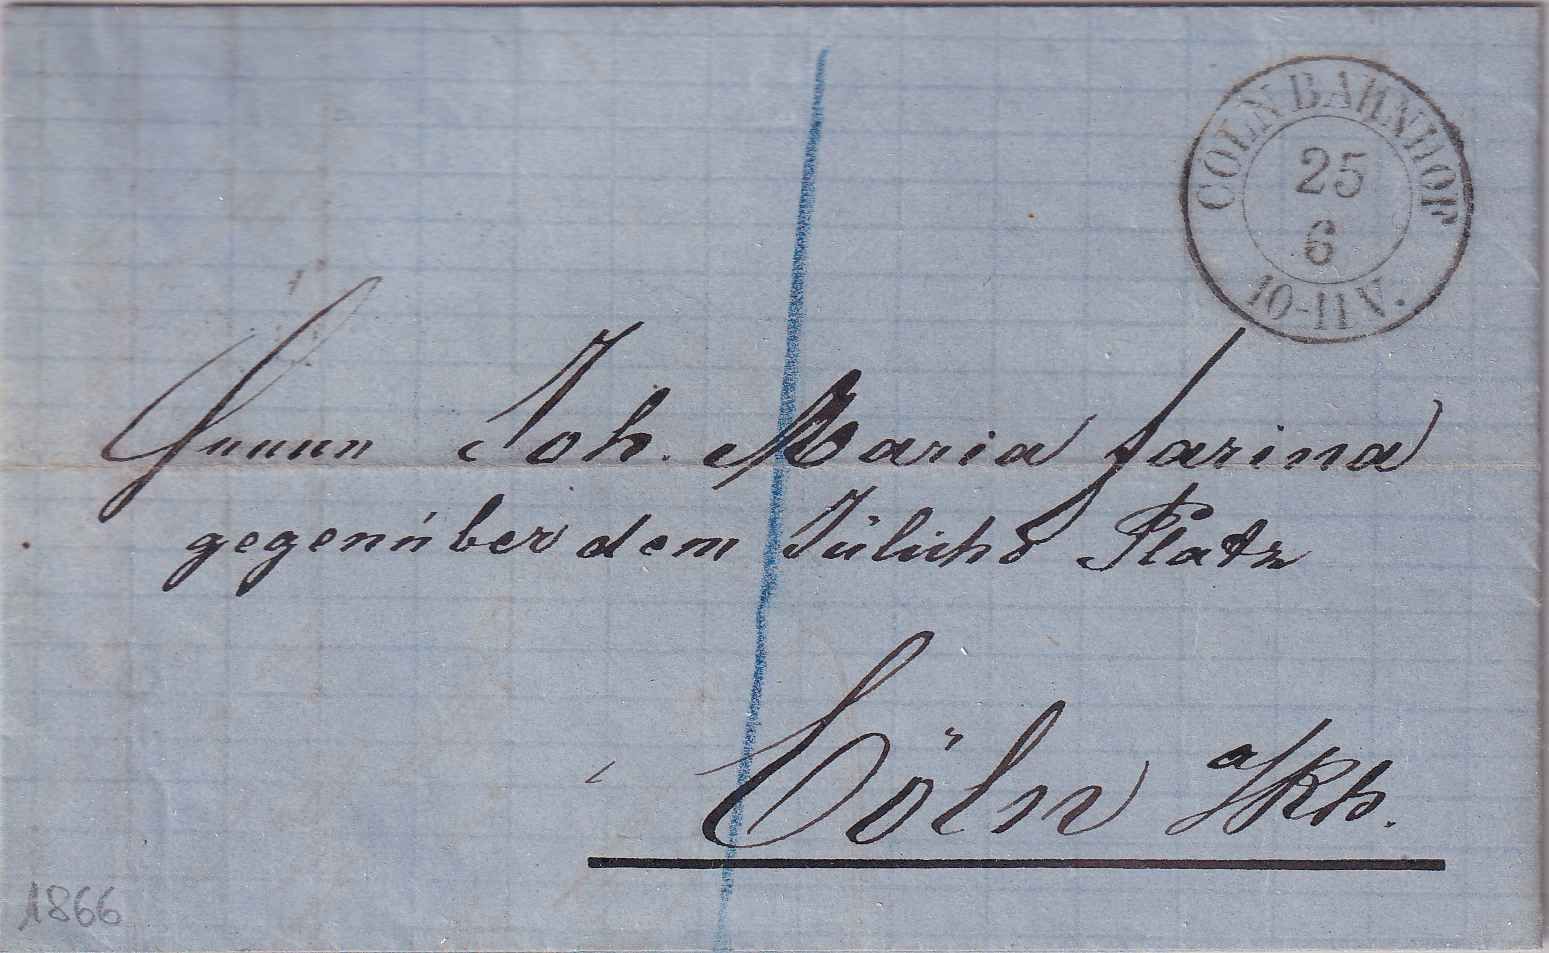 CÖLN BAHNHOF
25
6
10-11 V.
Herrn Joh. Maria Farina
gegenüber dem Jülichs Platz
Cöln a/Rh.
1866